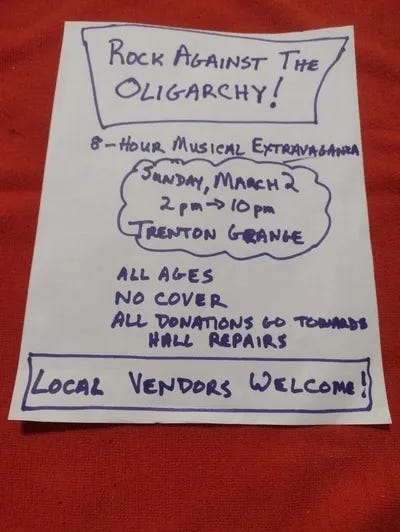 ROCK AGAINST THE
OLIGARCHY!
8-HOUR MUSICAL EXTRAVAGANZA
SUNDAY, MARCH 2
2pm→10pm
TRENTON GRANGE
ALL AGES
NO COVER
ALL DONATIONS GO TOWARDS
HALL REPAIRS
LOCAL VENDORS WELCOME!